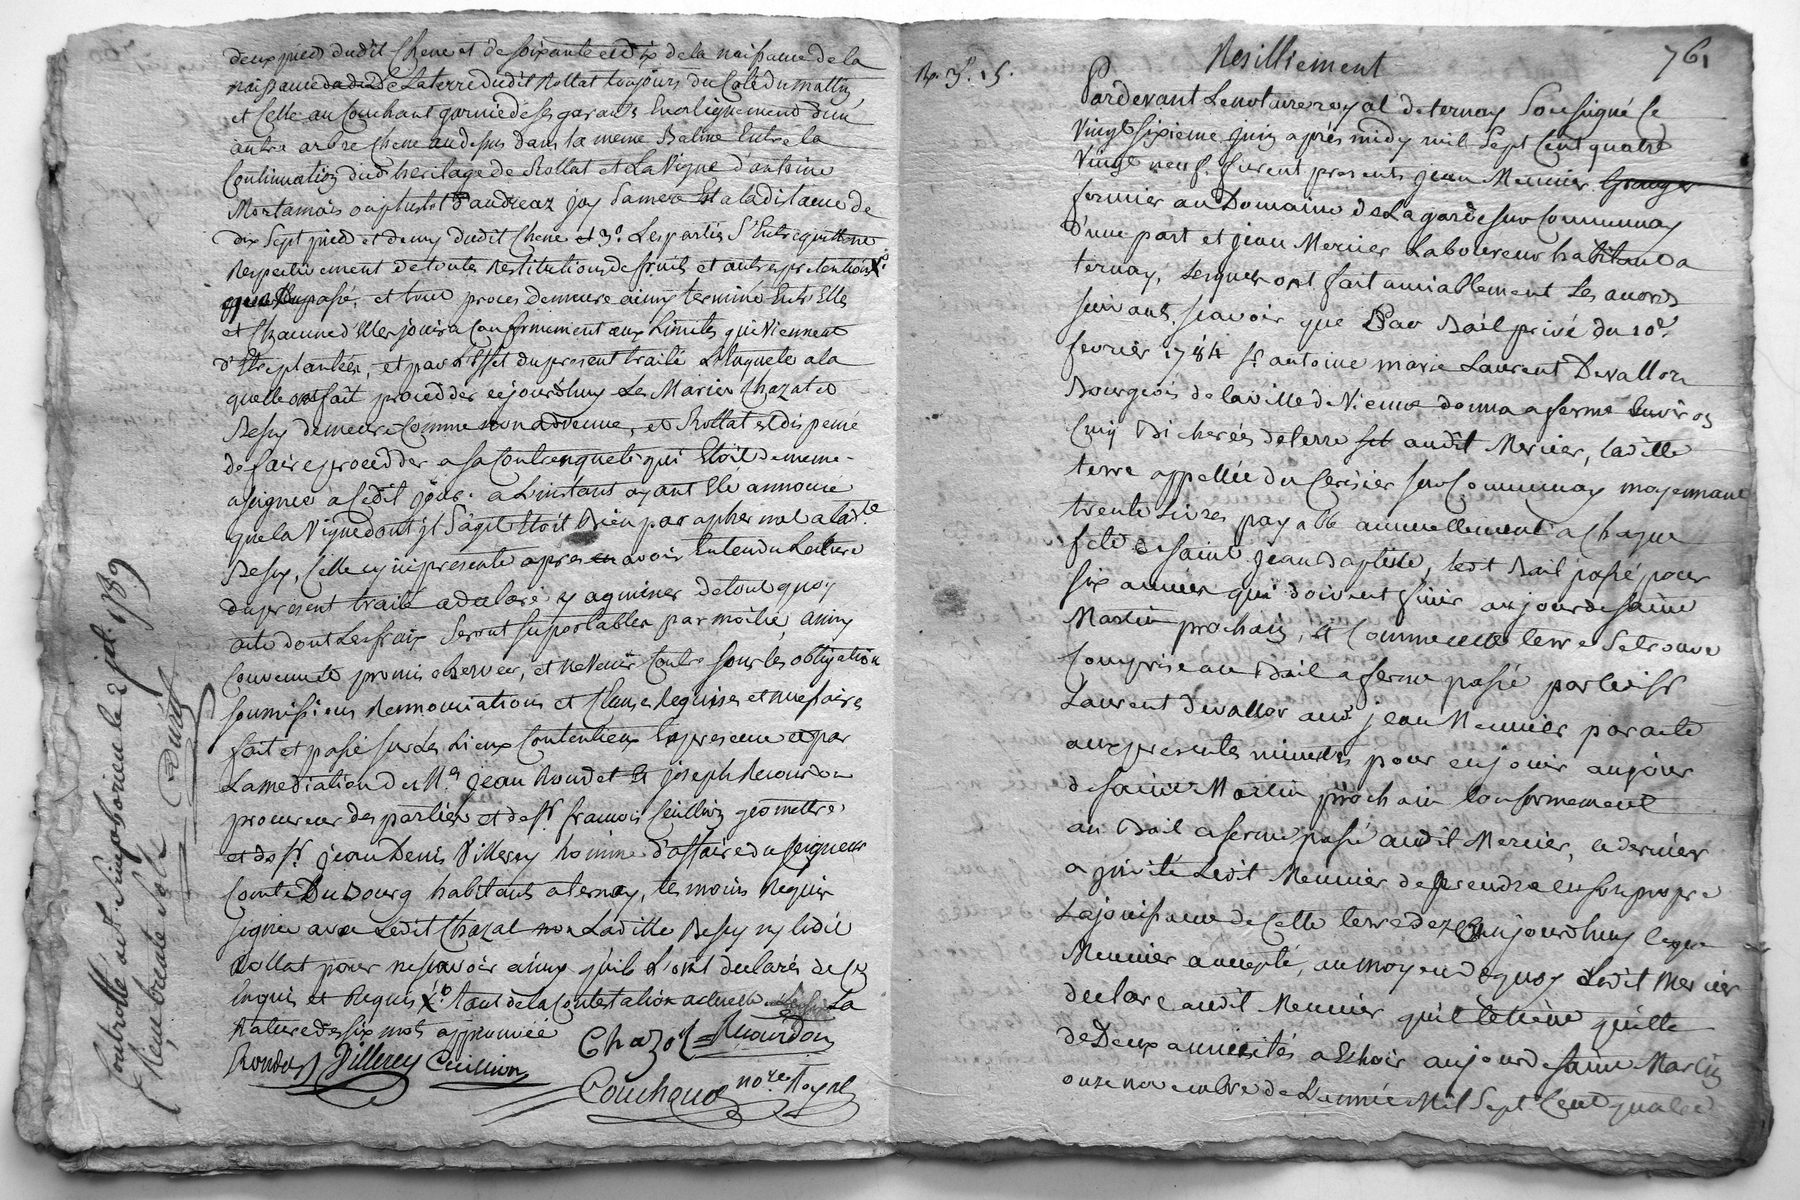 deux pied dudit Chene et de soixante et dix de la naissance de la
naissance de la terre dudit Rollat toujours du Coté du matin,
et Celle au Couchant garnie de ses garants En alignement d'un
autre arbre Chene au dessus dans la meme Balme Entre la
Continuation dud heritage de Rollat et La Vigne d'antoine
Mortamais ou plustot d'andreaz joy Sa mere Et a la distance de
dix Sept pied et demy dudit Chene et 3º Les parties S'Entrequittent
Respectivement de toutes Restitutions de fruits et autres pretentions X
passé, et tout proces demeure ainsy terminé Entr'Elles
et Chacune d'Elles jouira Conformement aux Limites qui Viennent
d'Etre plantées, et par l'Effet du present traité L'Enquete a la
quelle ont fait procedder cejourdhuy Les Mariés Chazal et
Bessy demeure Comme non advenue, et Rollat Est dispensé
de faire procedder a sa Contrenquete qui Etoit de meme
assignée a cedit jour. a L'instant ayant Eté annoncé
que la Vigne dont jl S'agit Etoit Bien paraphernal a ladte
Bessy, Celle cy jci presente apres en avoir Entendu Lecture
du present traité a declaré y acquiescer de tout quoy
acte dont Les fraix Seront suportables par moitié, ainsy
Convenu et promis observer, et ne Venir Contre sous les obligation
soumissions Rennonciations et Clauses Requises et necessaires
fait et passé sur les Lieux Contentieux En presence et par
La mediation de Me jean Rondet et joseph Recourdon
procureur des parties et de sr francois Cuillon geomettre
et de sr jean Denis Villerey homme d'affaire du seigneur
Comte Dubourg habitants a ternay, temoins Requis
signés avec Ledit Chazal non Ladite Bessy ny ledit
Rollat pour ne sçavoir ainsy qu'ils L'ont declarés de ce
Enquis et Requis X tant de la Contestation actuelle La
Nature des six mots approuvée
Chazal Recourdon
Rondet Villerey Cuillon
Couchoud nore Royal
Controllé a St Simphorien le 2 jet. 1789
R/ Cinquante sols
Rp. 3#. 15.
Resilliement
761
Pardevant Le notaire royal de ternay Soussigné Ce
Vingt Sixieme juin après midy mil Sept Cent quatre
Vingt neuf. furent presents jean Meunier Granger
fermier au Domaine de La garde sur Communay
d'une part et jean Mercier Laboureur habitant a
ternay, Lesquels ont fait amiablement Les accords
suivants, sçavoir que Par Bail privé du 10e
fevrier 1784 sr antoine marie Laurent Devallon
Bourgeois de la ville de Vienne donna a ferme Environ
Cinq Bicherées de terre audit Mercier, ladite
terre appellée du Cerisier sur Communay moyennant
trente Livres payable annuellement a Chaque
fete de saint jean Baptiste, ledt Bail passé pour
six années qui doivent finir au jour de saint
Martin prochain, Et Comme cette terre se trouve
Comprise au Bail a ferme passé par ledit sr
Laurent Devallon aud jean Meunier par acte
aux presentes minuttes pour en jouir au jour
de saint Martin prochain Conformement
au Bail a ferme passé audit Mercier, ce dernier
a jnvité Ledit Meunier de prendre en son propre
La jouissance de Cette terre dez Cejourdhuy ce que
Meunier a accepté, au moyen de quoy Ledit Mercier
declare audit Meunier qu'il le tiens quitte
de Deux annuités a Echoir au jour de saint Martin
onze novembre de L'année Mil Sept Cent quatre